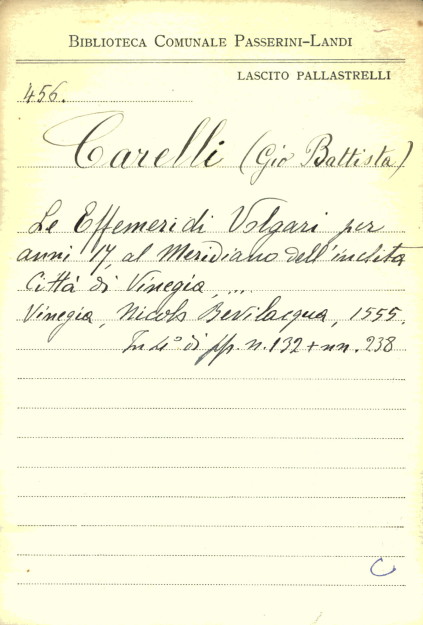 BIBLIOTECA COMUNALE PASSERINI-LANDI
LASCITO PALLASTRELLI
456.
Carelli (Gio Battista)
Le Effemeridi Volgari per
anni 17, al Meridiano dell'inclita
Città di Vinegia, ...
Vinegia, Nicolò Bevilacqua, 1555.
In 4° di pp. n. 132 + nn. 238
C